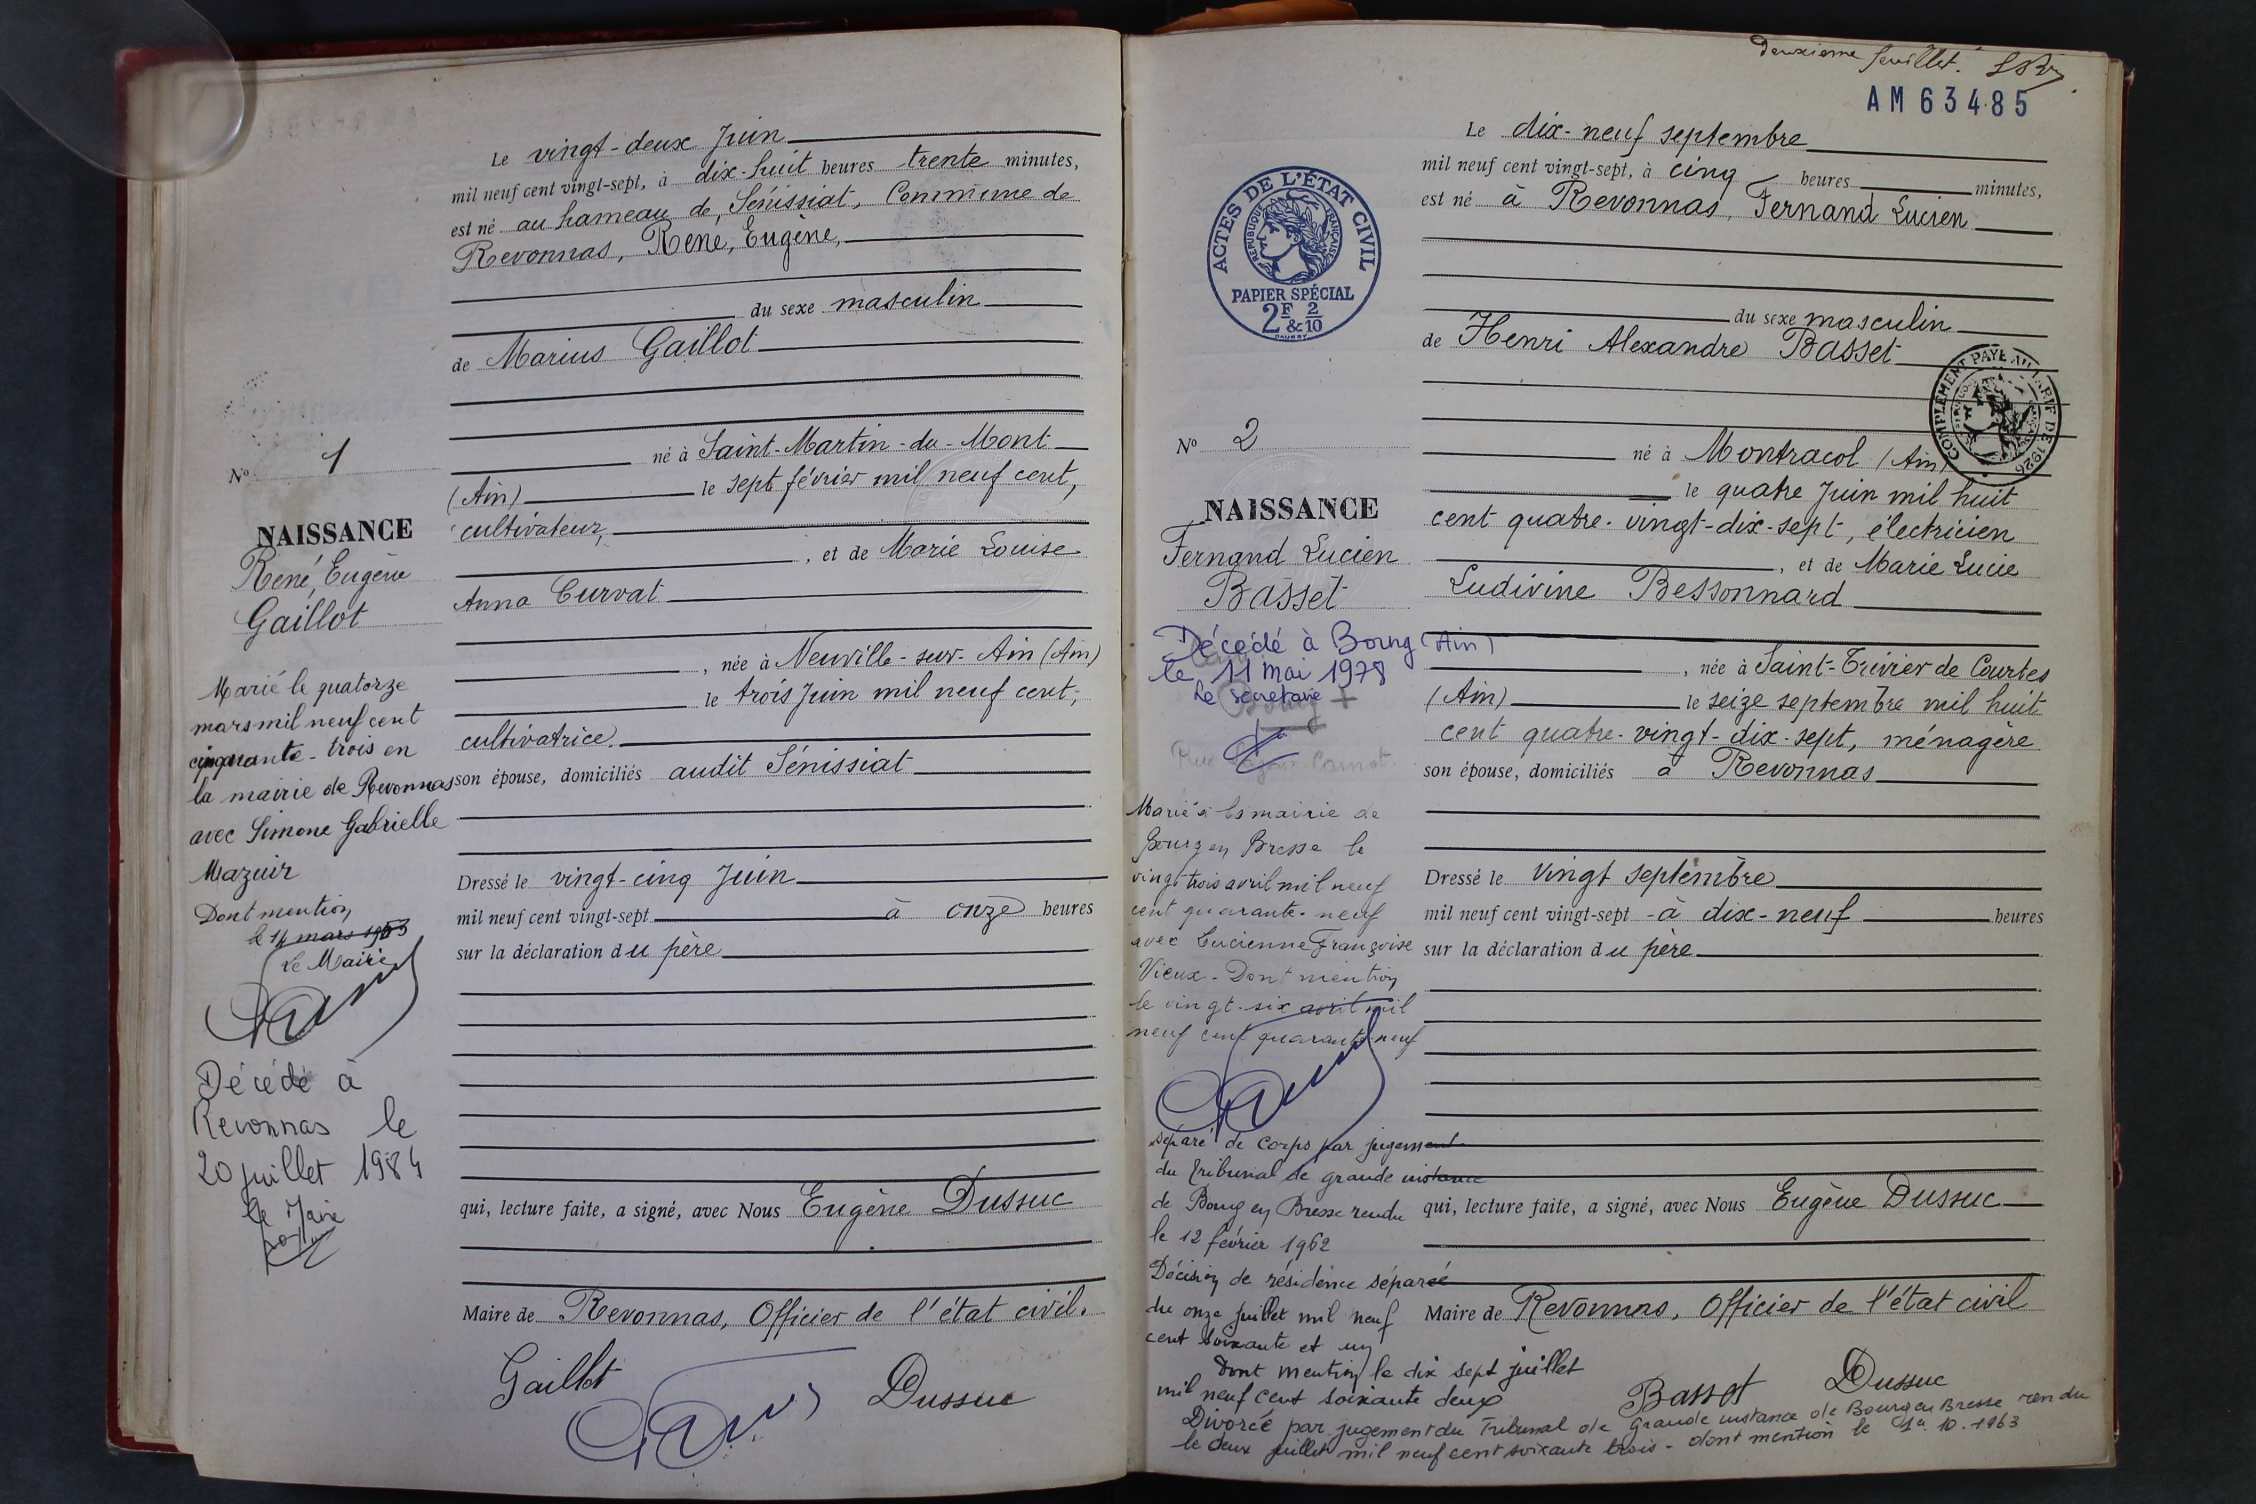 Le vingt-deux Juin
mil neuf cent vingt-sept, à dix-huit heures trente minutes,
est né au hameau de Sénissiat, Commune de
Revonnas, René, Eugène,
du sexe masculin
de Marius Gaillot
né à Saint-Martin-du-Mont
(Ain) le sept février mil neuf cent,
cultivateur,
, et de Marie Louise
Anna Curvat
, née à Neuville-sur-Ain (Ain)
le trois Juin mil neuf cent,
cultivatrice.
son épouse, domiciliés audit Sénissiat
Dressé le vingt-cinq Juin
mil neuf cent vingt-sept à onze heures
sur la déclaration du père
qui, lecture faite, a signé, avec Nous Eugène Dussuc
Maire de Revonnas, Officier de l'état civil.
Gaillot
Dussuc
N° 1
NAISSANCE
René, Eugène
Gaillot
Marié le quatorze
mars mil neuf cent
cinquante-trois en
la mairie de Revonnas
avec Simone Gabrielle
Mazuir
Dont mention
le 14 mars 1953
Le Maire
Décédé à
Revonnas le
20 juillet 1984
le Maire
deuxième feuillet.
AM 63485
ACTES DE L'ÉTAT CIVIL
RÉPUBLIQUE FRANÇAISE
PAPIER SPÉCIAL
2F & 2/10
Le dix-neuf septembre
mil neuf cent vingt-sept, à cinq heures minutes,
est né à Revonnas, Fernand Lucien
du sexe masculin
de Henri Alexandre Basset
COMPLÉMENT PAYÉ AU TARIF DE 1926
né à Montracol (Ain)
le quatre Juin mil huit
cent quatre-vingt-dix-sept, électricien
, et de Marie Lucie
Ludivine Bessonnard
, née à Saint-Trivier de Courtes
(Ain) le seize septembre mil huit
cent quatre-vingt-dix-sept, ménagère
son épouse, domiciliés à Revonnas
Dressé le vingt septembre
mil neuf cent vingt-sept - à dix-neuf heures
sur la déclaration du père
qui, lecture faite, a signé, avec Nous Eugène Dussuc
Maire de Revonnas, Officier de l'état civil
Basset
Dussuc
N° 2
NAISSANCE
Fernand Lucien
Basset
Décédé à Bourg (Ain)
le 11 mai 1978
Le secrétaire
Bourg
Rue Carnot
Marié à la mairie de
Bourg en Bresse le
vingt trois avril mil neuf
cent quarante-neuf
avec Lucienne Françoise
Vieux - Dont mention
le vingt-six avril mil
neuf cent quarante-neuf
séparé de corps par jugement
du tribunal de grande instance
de Bourg en Bresse rendu
le 12 février 1962
Décision de résidence séparée
du onze juillet mil neuf
cent soixante et un
Dont mention le dix sept juillet
mil neuf cent soixante deux
Divorcé par jugement du Tribunal de Grande instance de Bourg en Bresse rendu
le deux juillet mil neuf cent soixante trois - dont mention le 1er 10.1963